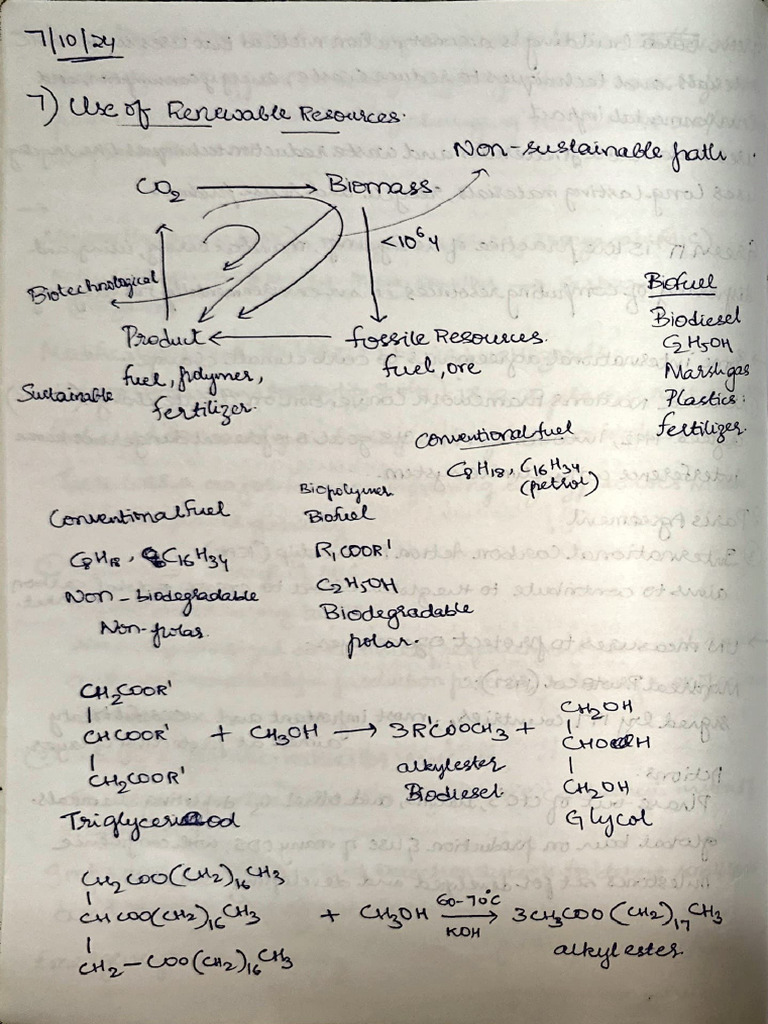 7/10/24
7) Use of Renewable Resources.
Non-sustainable path.
CO₂ ⟶ Biomass.
<10⁶ y
Biotechnological
Product ⟵ fossile Resources.
fuel, polymer,
fertilizer.
fuel, ore
Sustainable
Biofuel
Biodiesel
C₂H₅OH
Marsh gas
Plastics.
fertilizer.
Conventional fuel
C₈H₁₈, C₁₆H₃₄
(petrol)
Conventional fuel
C₈H₁₈, C₁₆H₃₄
Non-biodegradable
Non-polar.
Biopolymer
Biofuel
R₁COOR'
C₂H₅OH
Biodegradable
polar.
CH₂COOR'
|
CHCOOR' + CH₃OH ⟶ 3R'COOCH₃ +
|
CH₂COOR'
Triglycerod
alkylester
Biodiesel
CH₂OH
|
CHOH
|
CH₂OH
Glycol
CH₂COO(CH₂)₁₆CH₃
|
CHCOO(CH₂)₁₆CH₃ + CH₃OH ⟶ 3CH₃COO(CH₂)₁₇CH₃
60-70°C
KOH
|
CH₂-COO(CH₂)₁₆CH₃
alkylester.